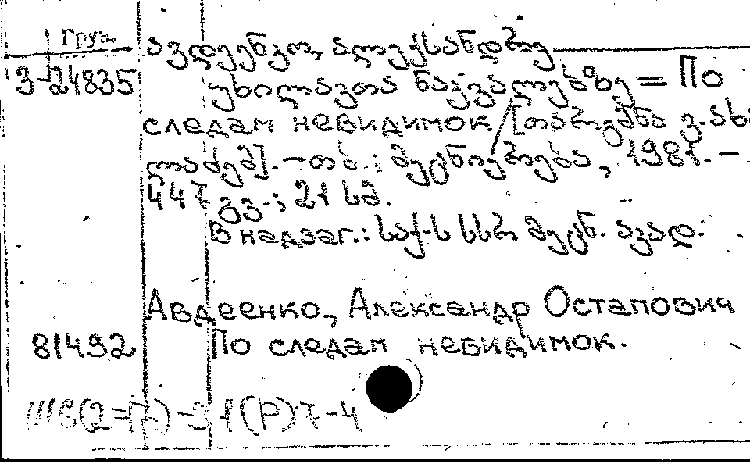 Груз.
3-24835
ავდეენკო, ალექსანდრე
უხილავთა ნაკვალევზე = По
следам невидимок / [თარგმნა ვ. ახა
ლაძემ]. – თბ.: მეცნიერება, 1981. –
447 გვ.; 21 სმ.
В надзаг.: საქ-ს სსრ მეცნ. აკად.
Авдеенко, Александр Остапович
81492 По следам невидимок.